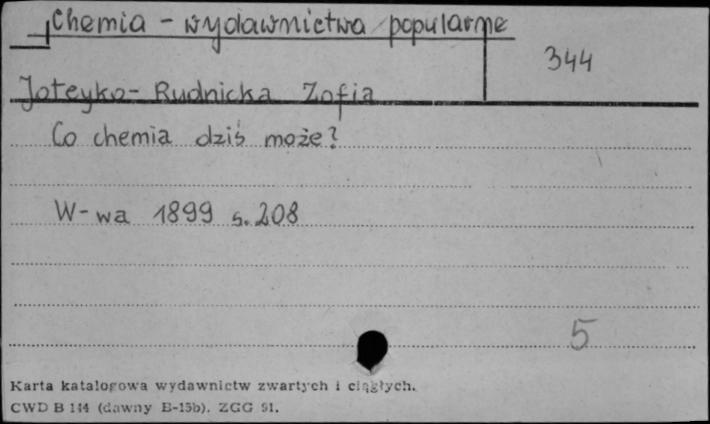 Chemia - wydawnictwa popularne
344
Joteyko-Rudnicka Zofia
Co chemia dziś może?
W-wa 1899 s. 208
5
Karta katalogowa wydawnictw zwartych i ciągłych.
CWD B 144 (dawny B-15b). ZGG 91.